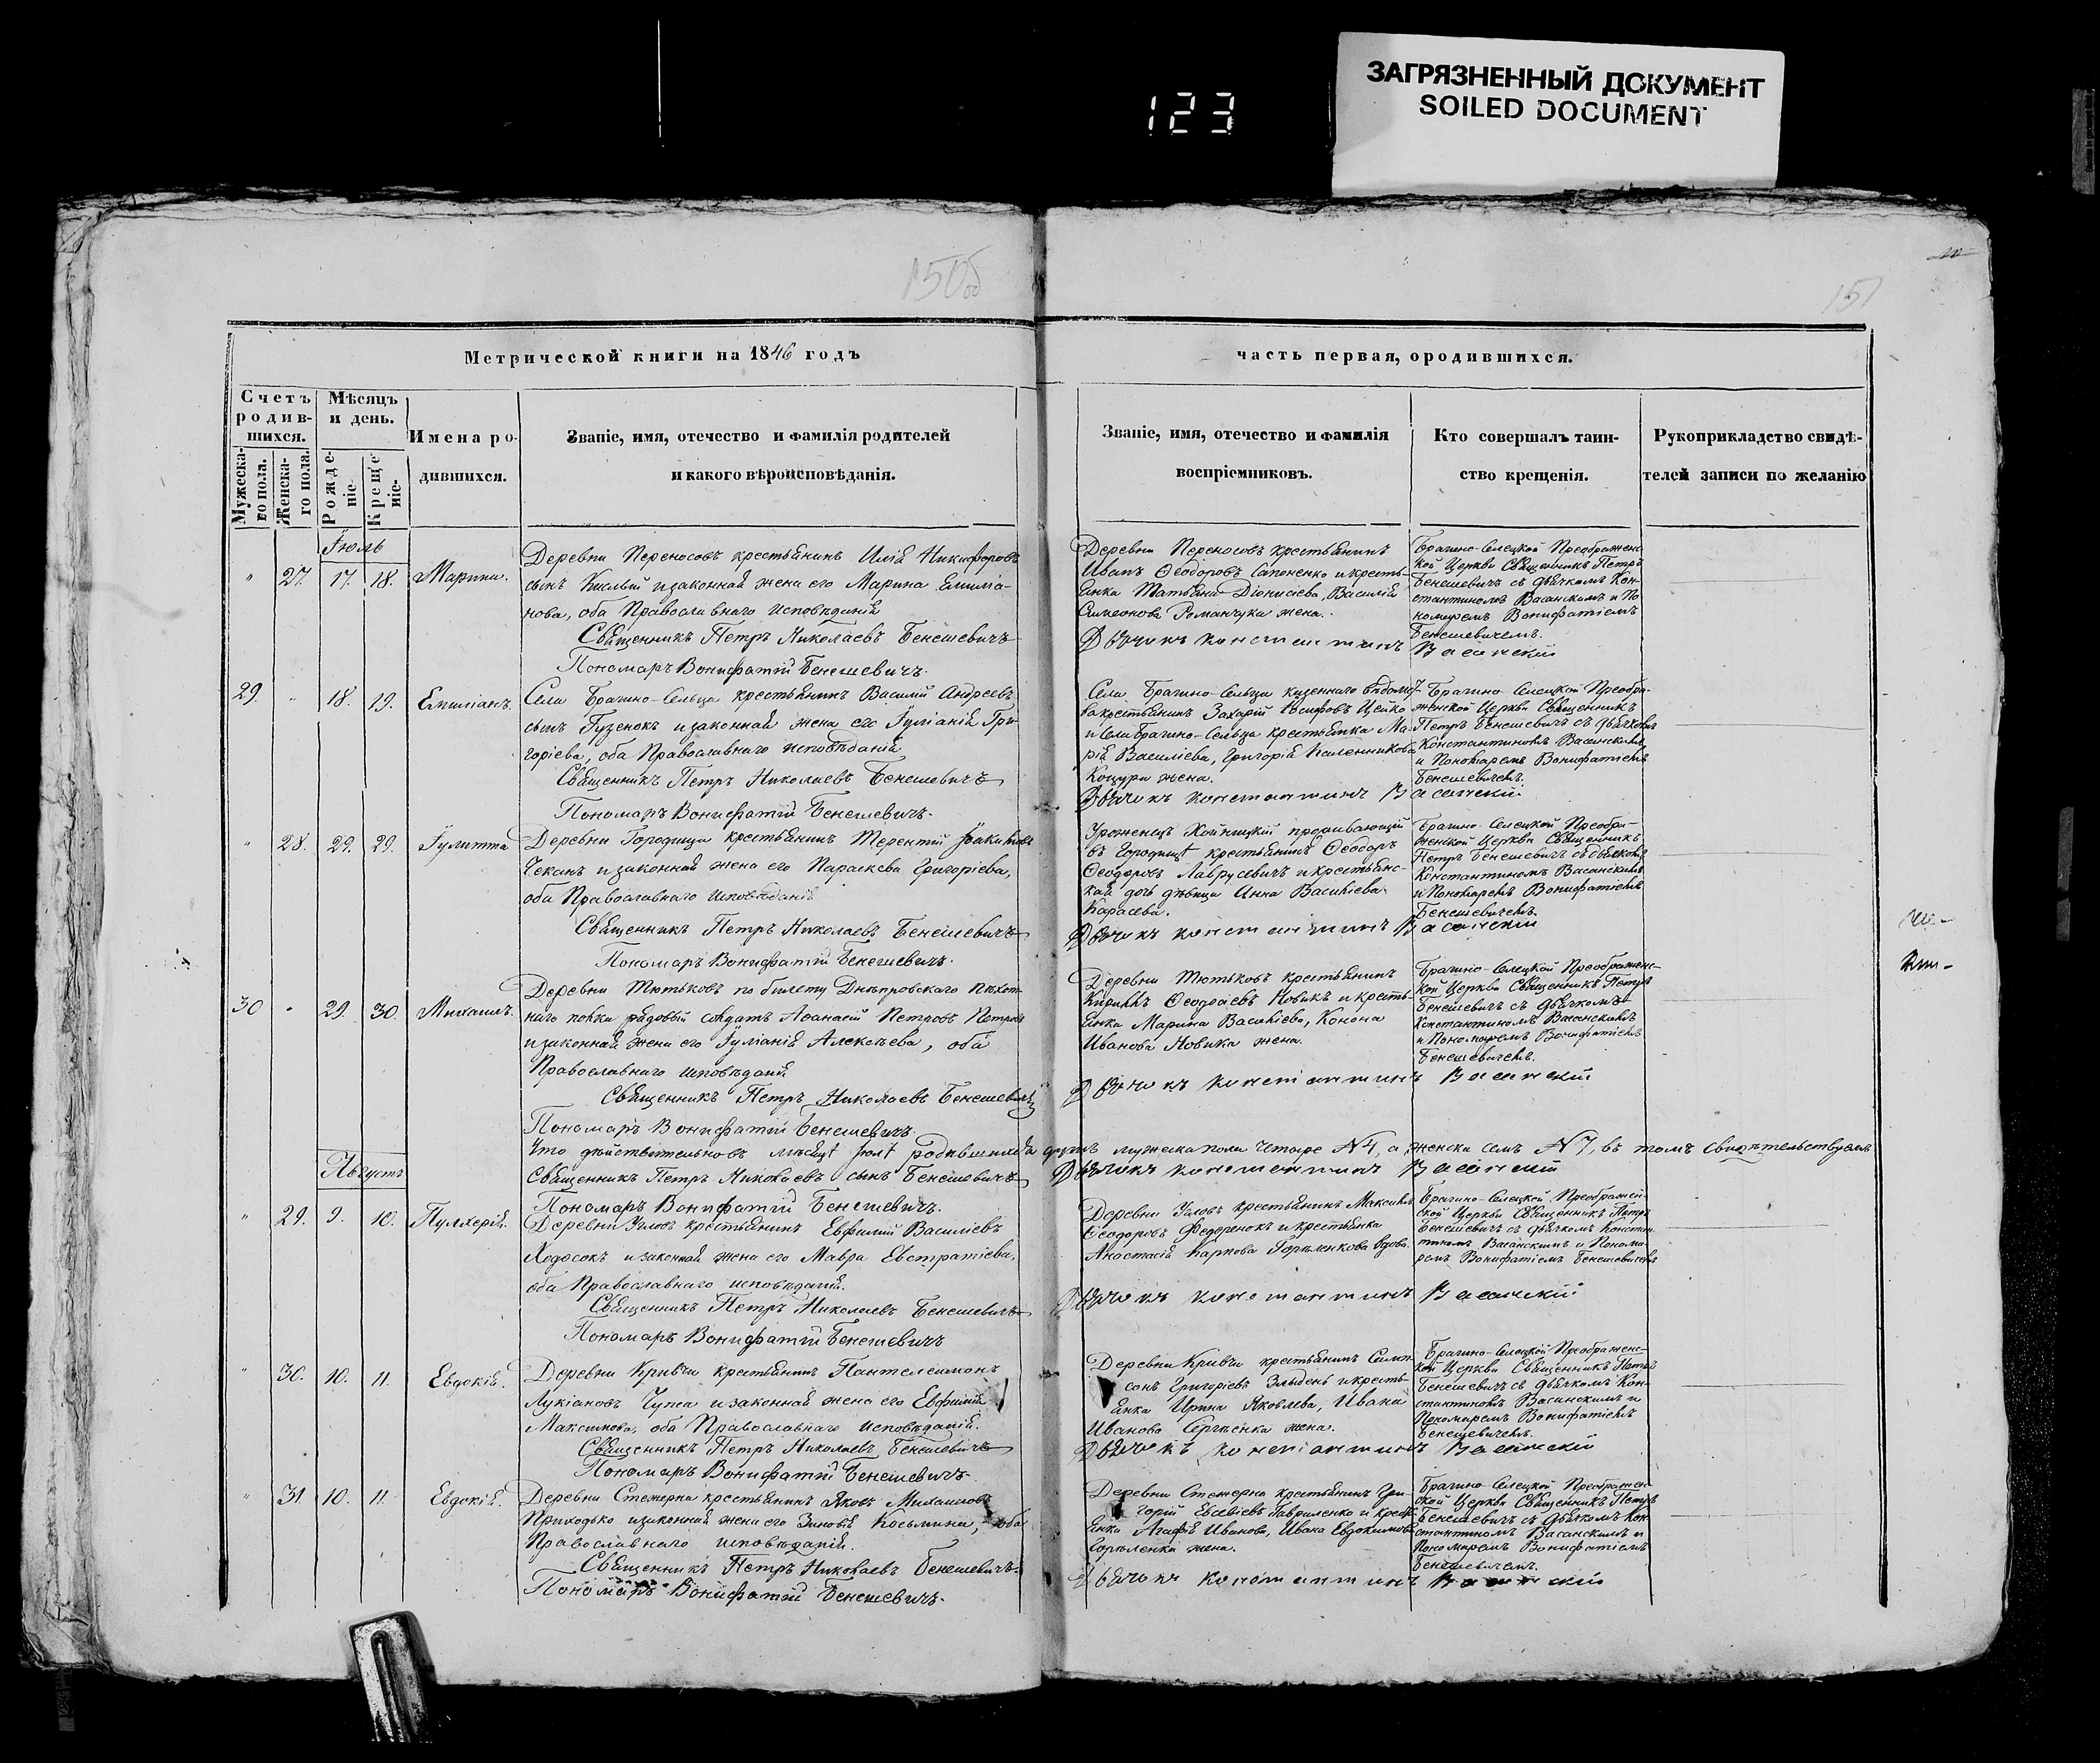 ЗАГРЯЗНЕННЫЙ ДОКУМЕНТ
SOILED DOCUMENT
123
150об
151
Метрической книги на 1846 годъ
часть первая, ородившихся.
Счетъ родив-шихся.
Мужеска-го пола.
Женска-го пола.
Мѣсяцъ и день.
Рожде-ніе.
Креще-ніе.
Имена ро-дившихся.
Званіе, имя, отечество и фамилія родителей
и какого вѣроисповѣданія.
Званіе, имя, отечество и фамилія
воспріемниковъ.
Кто совершалъ таин-
ство крещенія.
Рукоприкладство свидѣ-
телей записи по желанію
Іюль
" 27. 17. 18. Марина.
Деревни Переносовъ крестьянинъ Илія Никифоровъ
сынъ Кислый и законная жена его Марина Емиліа-
нова, оба Православнаго исповѣданія
Священникъ Петръ Николаевъ Бенешевичъ
Пономаръ Вонифатій Бенешевичъ.
Деревни Переносовъ крестьянинъ
Иванъ Ѳеодоровъ Сапоненко и кресть-
янка Татьяна Діонисіева, Василія
Симеонова Романчука жена.
Дьячокъ Константинъ Васанскій
Брагино-Селецкой Преображенс-
кой Церкви Священникъ Петръ
Бенешевичъ съ дьячкомъ Кон-
стантиномъ Васанскимъ и По-
номаремъ Вонифатіемъ
Бенешевичемъ.
29. " 18. 19. Емиліанъ.
Села Брагино-Сельца крестьянинъ Василій Андреевъ
сынъ Гузенокъ и законная жена его Іуліанія Гри-
горіева, оба Православнаго исповѣданія
Священникъ Петръ Николаевъ Бенешевичъ
Пономаръ Вонифатій Бенешевичъ.
Села Брагино-Сельца казеннаго вѣдомст-
ва крестьянинъ Захарій Іосифовъ Цейко
и Села Брагино-Сельца крестьянка Ма-
рія Василіева, Григорія
Коцура жена.
Дьячокъ Константинъ Васанскій
Брагино-Селецкой Преобра-
женской Церкви Священникъ
Петръ Бенешевичъ съ дьячкомъ
Константиномъ Васанскимъ
и Пономаремъ Вонифатіемъ
Бенешевичемъ.
" 28. 29. 29. Іулитта
Деревни Городища крестьянинъ Терентій
Чеканъ и законная жена его Параскева Григоріева,
оба Православнаго исповѣданія
Священникъ Петръ Николаевъ Бенешевичъ
Пономаръ Вонифатій Бенешевичъ.
Уроженецъ Хойницкій проживающій
въ Городищѣ крестьянинъ Ѳеодоръ
Ѳеодоровъ Лаврусевичъ и крестьянс-
кая дочь дѣвица Анна Василіева
Карасева.
Дьячокъ Константинъ Васанскій
Брагино-Селецкой Преобра-
женской Церкви Священникъ
Петръ Бенешевичъ съ дьячкомъ
Константиномъ Васанскимъ
и Пономаремъ Вонифатіемъ
Бенешевичемъ.
30 " 29. 30. Михаилъ.
Деревни Тютьковъ по билету Днѣпровскаго Пѣхот-
наго полка рядовый солдатъ Аѳанасій Петровъ
и законная жена его Іуліанія Алексѣева, оба
Православнаго исповѣданія
Священникъ Петръ Николаевъ Бенешевичъ
Пономаръ Вонифатій Бенешевичъ.
Деревни Тютьковъ крестьянинъ
Кириллъ Новикъ и кресть-
янка Марина Василіева, Конона
Иванова Новика жена.
Дьячокъ Константинъ Васанскій
Брагино-Селецкой Преображенс-
кой Церкви Священникъ Петръ
Бенешевичъ съ дьячкомъ
Константиномъ Васанскимъ
и Пономаремъ Вонифатіемъ
Бенешевичемъ.
Что дѣйствительно въ мѣсяцѣ Іюлѣ родившихся душъ мужеска пола четыре №4, а женска семъ №7, въ томъ свидѣтельствуемъ
Священникъ Петръ Николаевъ сынъ Бенешевичъ
Дьячокъ Константинъ Васанскій
Пономаръ Вонифатій Бенешевичъ.
Августъ
" 29. 9. 10. Пулхерія.
Деревни крестьянинъ Евфимій Василіевъ
Ходосокъ и законная жена его Мавра Евстратіева,
оба Православнаго исповѣданія.
Священникъ Петръ Николаевъ Бенешевичъ
Пономаръ Вонифатій Бенешевичъ
Деревни крестьянинъ Максимъ
Ѳеодоровъ Федоренокъ и крестьянка
Анастасія Карпова Горѣленкова вдова.
Дьячокъ Константинъ Васанскій
Брагино-Селецкой Преображен-
ской Церкви Священникъ Петръ
Бенешевичъ съ дьячкомъ Констан-
тиномъ Васанскимъ и Понома-
ремъ Вонифатіемъ Бенешевичемъ
" 30. 10. 11. Евдокія.
Деревни Кривчи крестьянинъ Пантелеимонъ
Лукіановъ Чупса и законная жена его Евфимія
Максимова, оба Православнаго исповѣданія.
Священникъ Петръ Николаевъ Бенешевичъ
Пономаръ Вонифатій Бенешевичъ.
Деревни Кривчи крестьянинъ Самп-
сонъ Григоріевъ Злыдень и кресть-
янка Ирина Яковлева, Ивана
Иванова Сергѣенка жена.
Дьячокъ Константинъ Васанскій
Брагино-Селецкой Преображенс-
кой Церкви Священникъ Петръ
Бенешевичъ съ дьячкомъ Кон-
стантиномъ Васанскимъ и
Пономаремъ Вонифатіемъ
Бенешевичемъ.
" 31. 10. 11. Евдокія.
Деревни Стежерна крестьянинъ Яковъ Михаиловъ
Приходько и законная жена его Зиновія Косьмина, оба
Православнаго исповѣданія.
Священникъ Петръ Николаевъ Бенешевичъ.
Пономаръ Вонифатій Бенешевичъ.
Деревни Стежерна крестьянинъ Гри-
горій Евсевіевъ Гавриленко и кресть-
янка Агафія Иванова, Ивана Евдокимова
Горѣленка жена.
Дьячокъ Константинъ Васанскій
Брагино-Селецкой Преображен-
ской Церкви Священникъ Петръ
Бенешевичъ съ дьячкомъ Кон-
стантиномъ Васанскимъ и
Пономаремъ Вонифатіемъ
Бенешевичемъ.